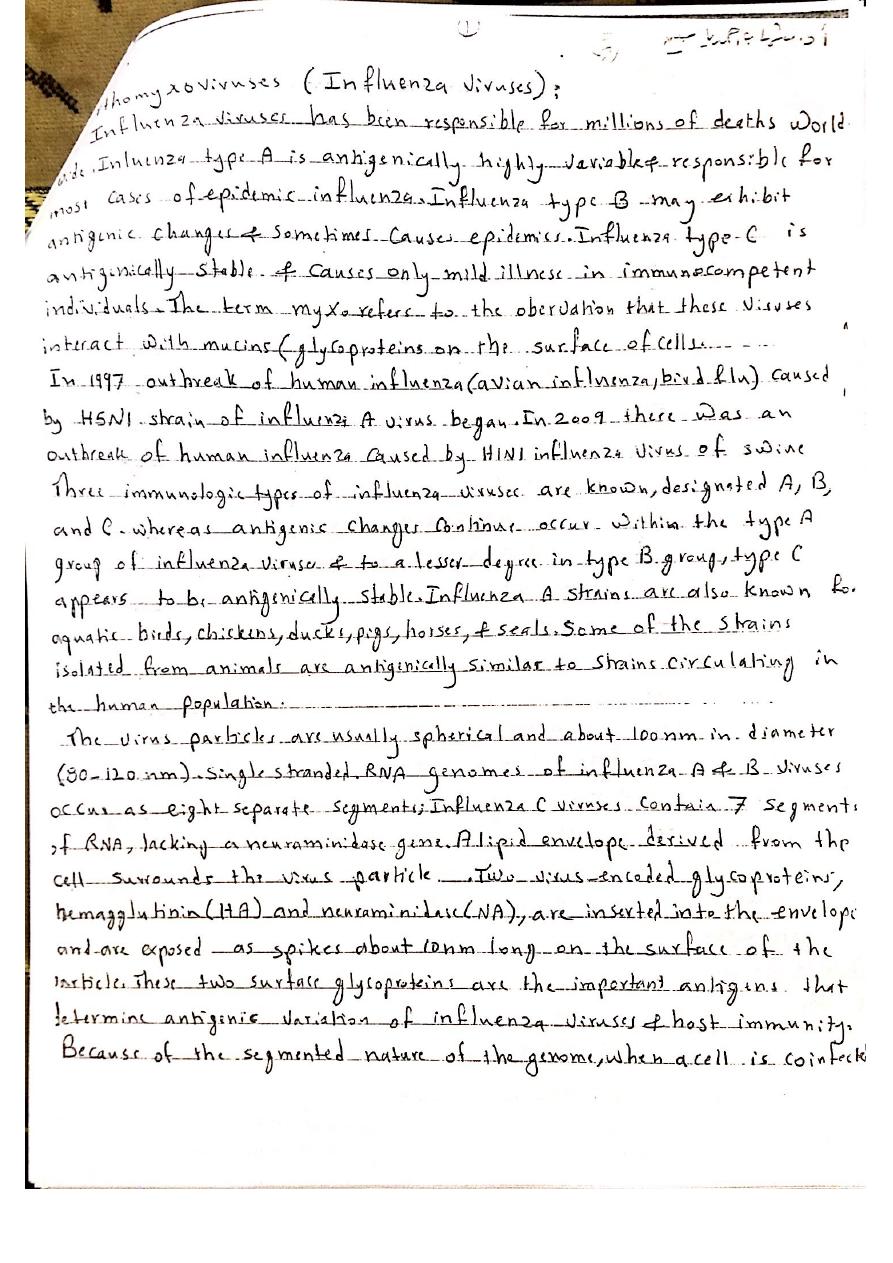 1
أ.د.
thomyxoviruses (Influenza Viruses):
Influenza viruses has been responsible for millions of deaths world
wide. Inluenza type A is antigenically highly variable & responsible for
most cases of epidemic influenza. Influenza type B may exhibit
antigenic changes & sometimes causes epidemics. Influenza type C is
antigenically stable & causes only mild illness in immunocompetent
individuals. The term myxo refers to the obervation that these viruses
interact with mucins (glycoproteins on the surface of cells.
In 1997 outbreak of human influenza (avian influenza, bird flu) caused
by H5N1 strain of influenza A virus began. In 2009 there was an
outbreak of human influenza caused by H1N1 influenza virus of swine
Three immunologic types of influenza viruses are known, designated A, B,
and C. whereas antigenic changes continue occur within the type A
group of influenza viruses & to a lesser degree in type B group, type C
appears to be antigenically stable. Influenza A strains are also known fo
aquatic birds, chickens, ducks, pigs, horses, & seals. Some of the strains
isolated from animals are antigenically similar to strains circulating in
the human population.
The virus particles are usually spherical and about 100 nm in diameter
(80-120 nm). Single stranded RNA genomes of influenza A & B viruses
occur as eight separate segments; Influenza C viruses contain 7 segments
of RNA, lacking a neuraminidase gene. A lipid envelope derived from the
cell surrounds the virus particle. Two virus-encoded glycoproteins,
hemagglutinin (HA) and neuraminidase (NA), are inserted into the envelope
and are exposed as spikes about 10nm long on the surface of the
particle. These two surface glycoproteins are the important antigens that
determine antigenic variation of influenza viruses & host immunity.
Because of the segmented nature of the genome, when a cell is coinfecte